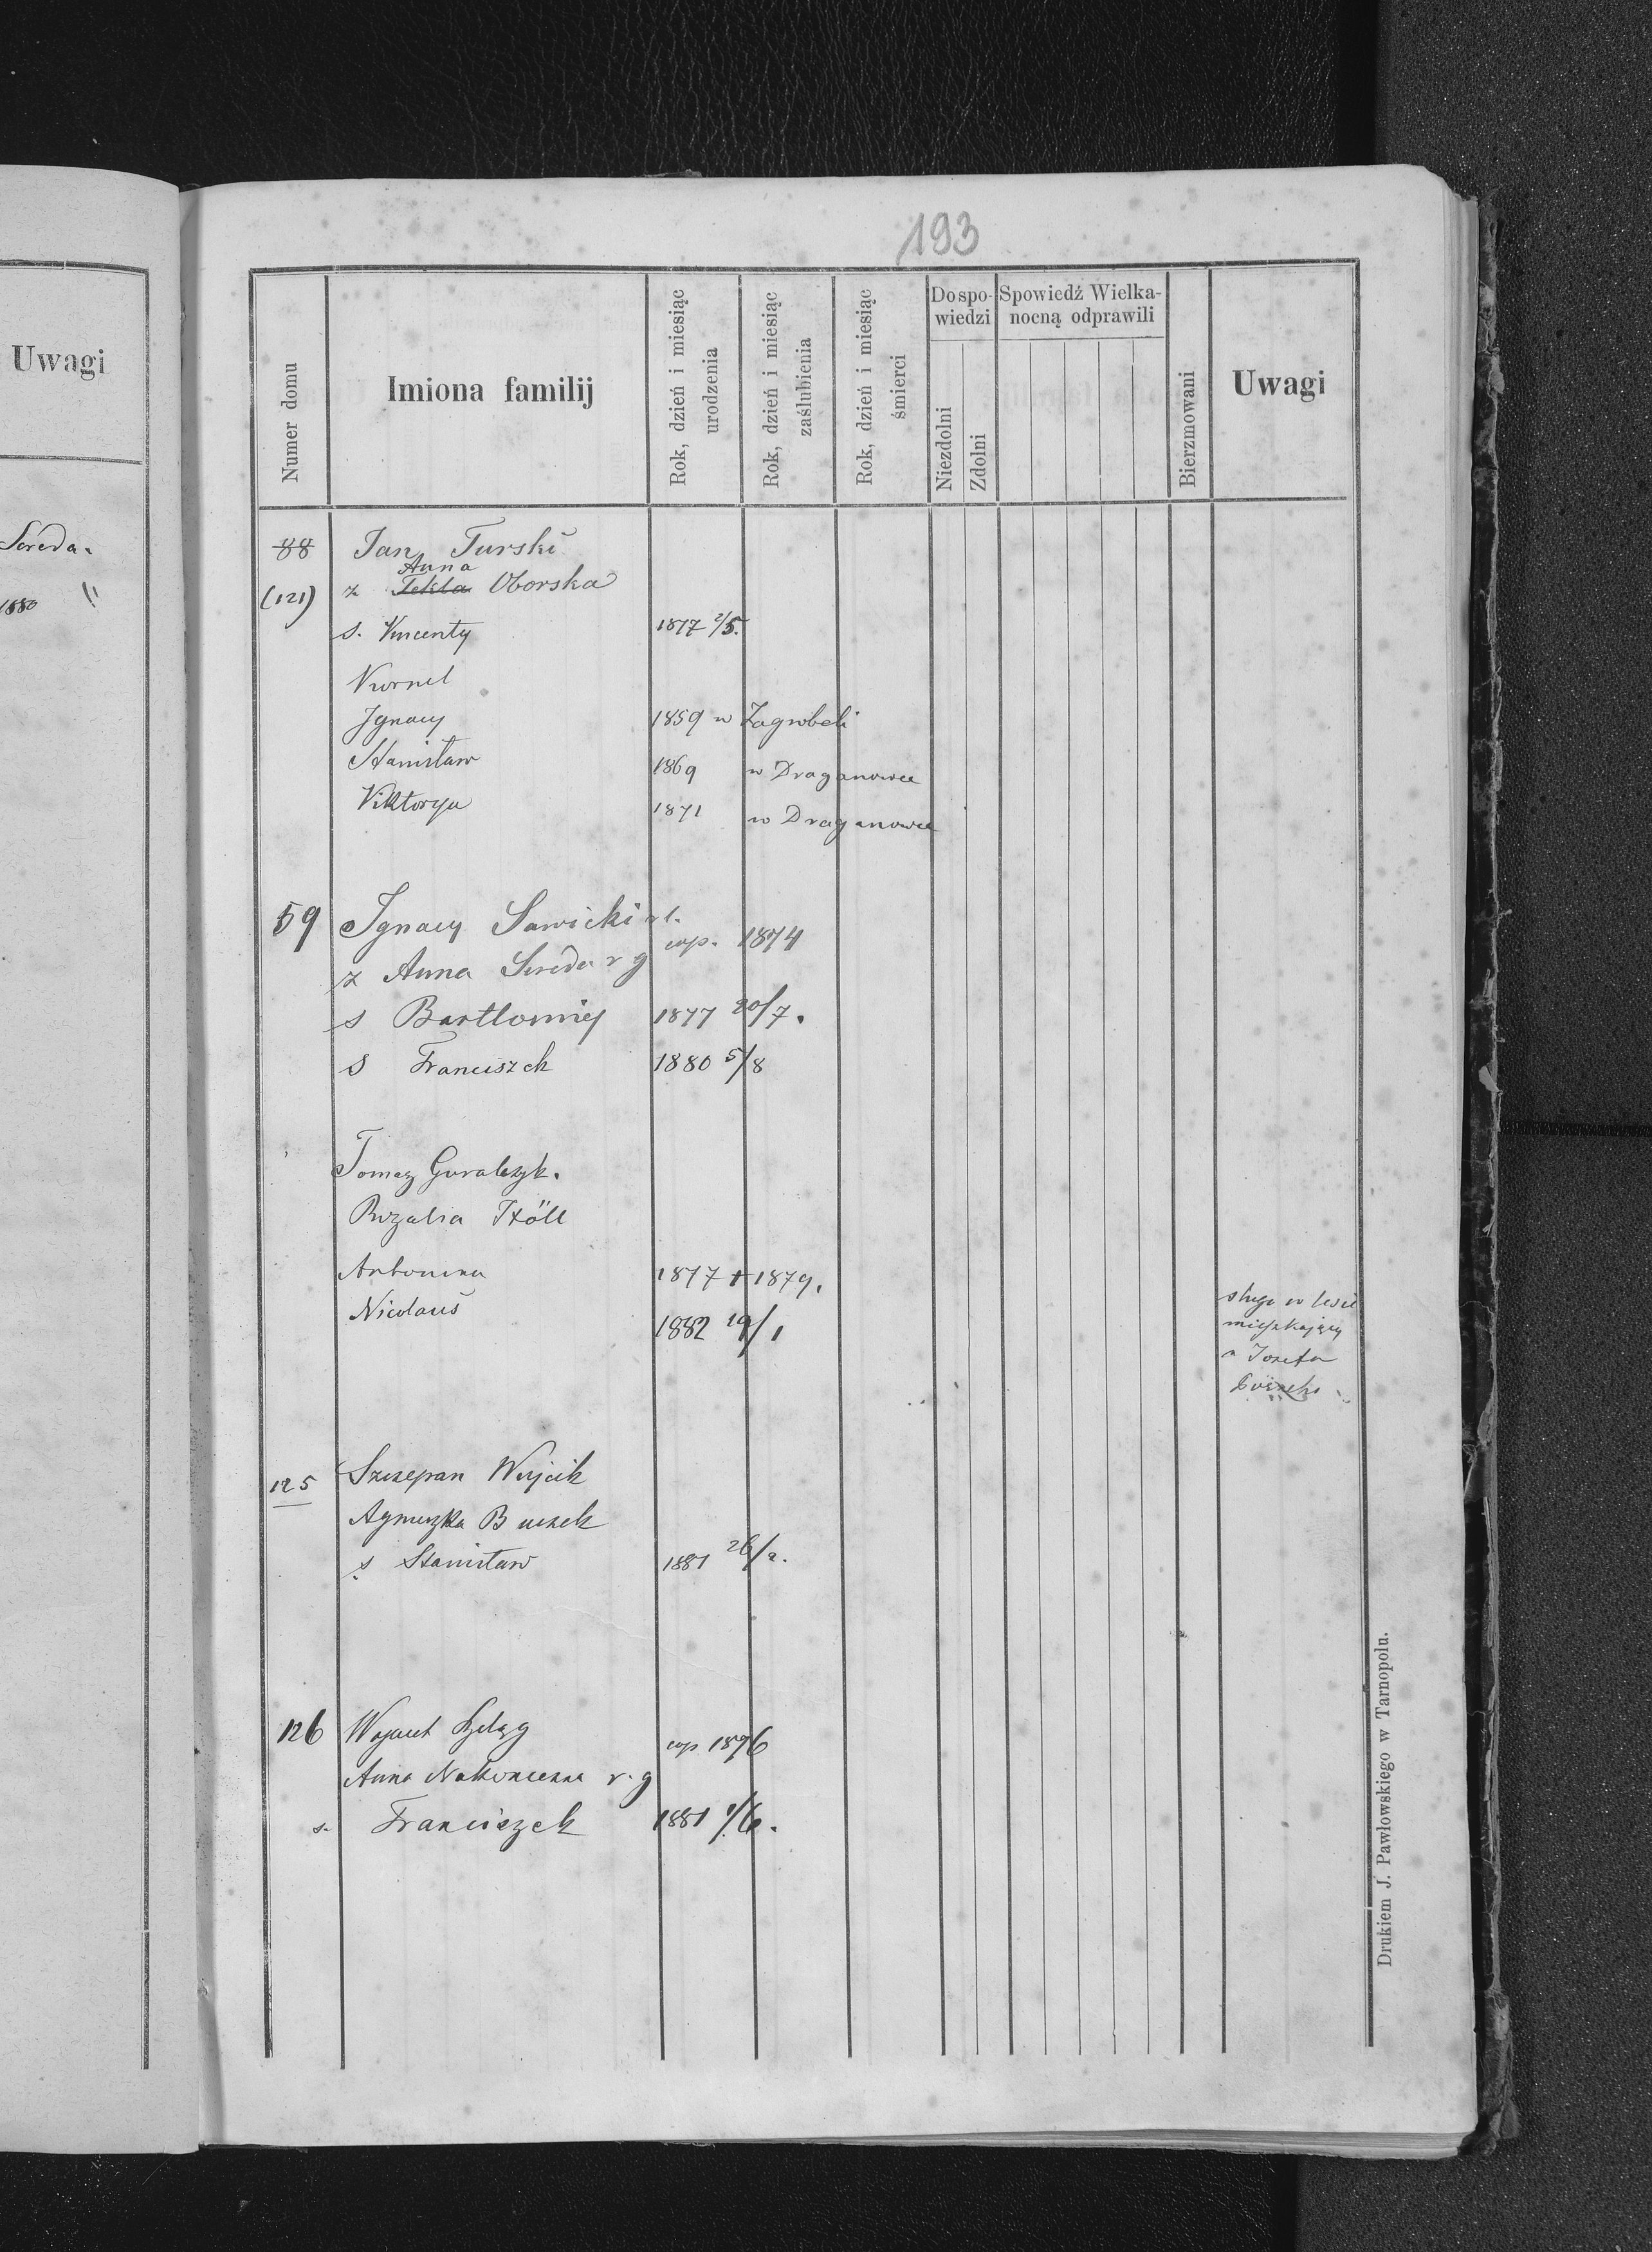 Uwagi
Sereda.
1880 "
193
Numer domu
Imiona familij
Rok, dzień i miesiąc urodzenia
Rok, dzień i miesiąc zaślubienia
Rok, dzień i miesiąc śmierci
Do spo-
wiedzi
Niezdolni
Zdolni
Spowiedź Wielka-
nocną odprawili
Bierzmowani
Uwagi
88 Jan Turski
Anna
(121) z Tekla Oborska
s. Vincenty 1877 2/5.
Kornel
Ignacy 1859 w Zagrobeli
Stanisław 1869 w Draganowce
Viktorya 1871 w Draganowce
59 Ignacy Sawicki r l.
cop. 1874
z Anna Sereda r g
s Bartłomiej 1877 20/7.
s Franciszek 1880 5/8
Tomasz Guralczyk.
Rozalia
Antonina 1877 + 1879.
Nicolaus 1882 19/1
sługa w lesie
mieszkający
Józefa
125 Szczepan Wujcik
Agnieszka Buczek
s Stanisław 1881 26/2.
126 Wojciech
cop 1876
Anna r. g
s. Franciszek 1881 1/6.
Drukiem J. Pawłowskiego w Tarnopolu.